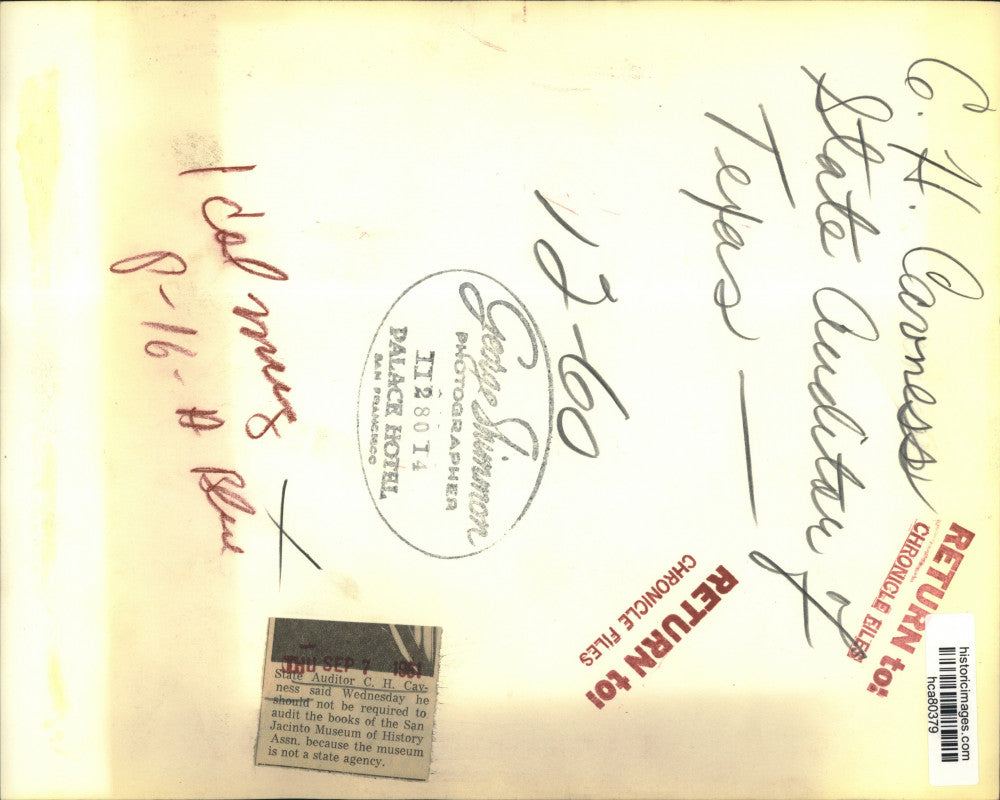 C. H. Cavness
State Auditor of
Texas —
12-60
George Shimmon
PHOTOGRAPHER
1128014
PALACE HOTEL
SAN FRANCISCO
1 col mug
8-16-A Blue
RETURN to!
CHRONICLE FILES
RETURN to!
CHRONICLE FILES
historicimages.com
hca80379
THU SEP 7 1961
State Auditor C. H. Cav-
ness said Wednesday he
should not be required to
audit the books of the San
Jacinto Museum of History
Assn. because the museum
is not a state agency.